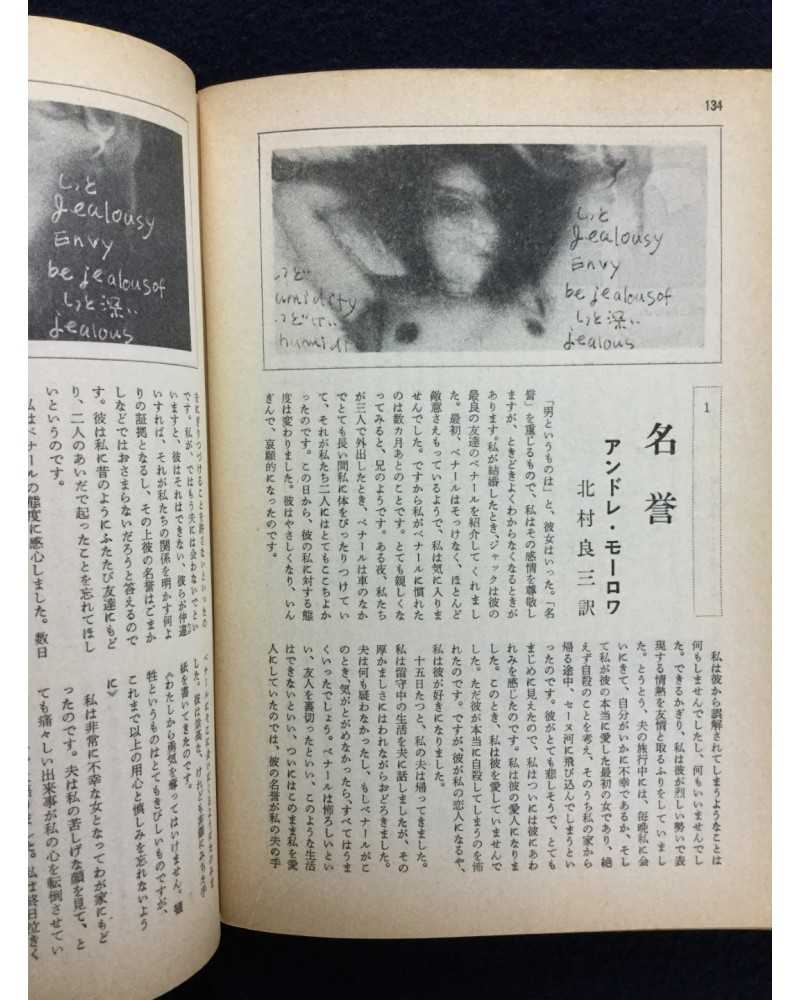 134
しっと
Jealousy
Envy
be jealous of
しっと深い
jealous
しつど
umidity
しつどけい
humidi
しっと
Jealousy
Envy
be jealous of
しっと深い
jealous
1
名誉
アンドレ・モーロワ
北村良三 訳
「男というものは」と、彼女はいった。「名
誉」を重じるもので、私はその感情を尊敬し
ますが、ときどきよくわからなくなるときが
あります。私が結婚したとき、ジャックは彼の
最良の友達のベナールを紹介してくれまし
た。最初、ベナールはそっけなく、ほとんど
敵意さえもっているようで、私は気に入りま
せんでした。ですから私がベナールに慣れた
のは数ヵ月あとのことです。とても親しくな
ってみると、兄のようです。ある夜、私たち
が三人で外出したとき、ベナールは車のなか
でとても長い間私に体をぴったりつけてい
て、それが私たち二人にはとてもここちよか
ったのです。この日から、彼の私に対する態
度は変わりました。彼はやさしくなり、いん
ぎんで、哀願的になったのです。
私は彼から誤解されてしまうようなことは
何もしませんでしたし、何もいいませんでし
た。できるかぎり、私は彼が烈しい勢いで表
現する情熱を友情と取るふりをしていまし
た。とうとう、夫の旅行中には、毎晩私に会
いにきて、自分がいかに不幸であるか、そし
て私が彼の本当に愛した最初の女であり、絶
えず自殺のことを考え、そのうち私の家から
帰る途中、セーヌ河に飛び込んでしまうとい
ったのです。彼がとても悲しそうで、とても
まじめに見えたので、私はついには彼にあわ
れみを感じたのです。私は彼の愛人になりま
した。このとき、私は彼を愛していませんで
した。ただ彼が本当に自殺してしまうのを怖
れたのです。ですが、彼が私の恋人になるや、
私は彼が好きになりました。
十五日たつと、私の夫は帰ってきました。
私は留守中の生活を夫に話しましたが、その
厚かましさにはわれながらおどろきました。
夫は何も疑わなかったし、もしベナールがこ
のとき、気がとがめなかったら、すべてはうま
くいったでしょう。ベナールは怖ろしいとい
い、友人を裏切ったといい、このような生活
はできないといい、ついにはこのまま私を愛
人にしていたのでは、彼の名誉が私の夫の手
をにぎりつづけることを許さないといったの
です。私が、ではもう夫には会わないでとい
いますと、彼はそれはできない、彼らが仲違
いすれば、それが私たちの関係を明かす何よ
りの証拠となるし、その上彼の名誉はごまか
しなどではおさまらないだろうと答えるので
す。彼は私に昔のようにふたたび友達にもど
り、二人のあいだで起ったことを忘れてほし
いというのです。
私はベナールの態度に感心しました。数日
紙を書いてきたのです。
《わたしから勇気を奪ってはいけません。犠
牲というものはとてもきびしいものですが、
これまで以上の用心と慎しみを忘れないよう
に》
私は非常に不幸な女となってわが家にもど
ったのです。夫は私の苦しげな顔を見て、と
ても痛々しい出来事が私の心を転倒させてい